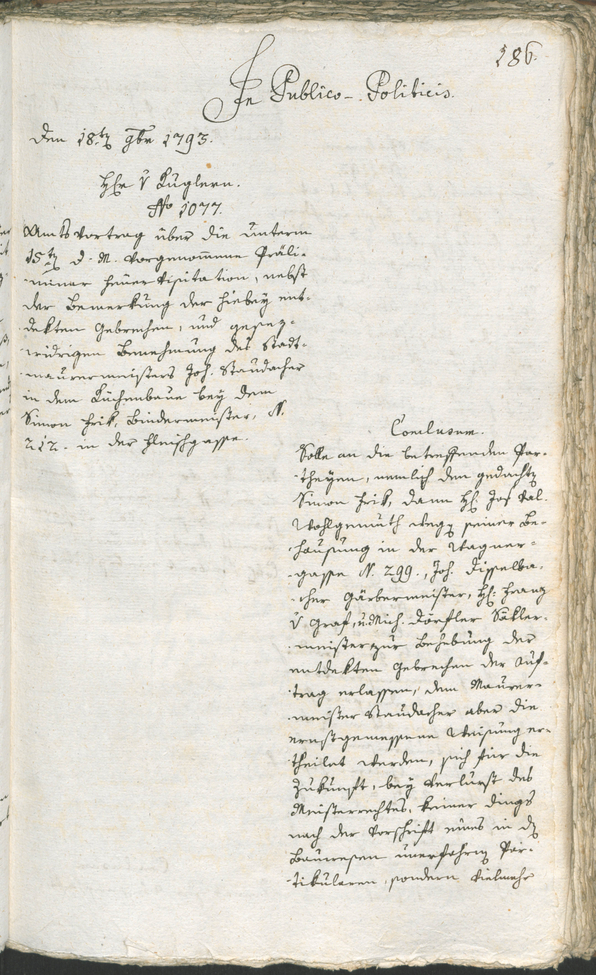 186.
In Publico-Politicis.
Den 18:ten 9br 1793.
Hr v Kuglern.
No 1077.
Amtsvortrag über die unterm
15ten d. M. vorgenommene Präli-
minar Feuer Visitation, nebst
der Bemerkung der hiebey ent-
dekten Gebrechen, und gesez-
widrigen Benehmung des Stadt-
maurermeisters Joh. Staudacher
in dem Küchenbaue bey dem
Simon Frik, Bindermeister, N.
212. in der Fleischgasse.
Conclusum.
Solle an die betreffenden Par-
theyen, nemlich den gedachten
Simon Frik, dann H: Jos Val.
Wohlgemuth wegen seiner Be-
hausung in der Wagner-
gasse N. 299., Joh. Disselba-
cher Gärbermeister, H: Franz
v Graf, u. Mich. Dorfler Sakler-
meister zur Behebung der
entdekten Gebrechen der Auf-
trag erlassen, dem Maurer-
meister Staudacher aber die
ernstgemessene Weisung er-
theilet werden, sich für die
Zukunft, bey Verlurst des
Meisterrechtes, keiner dings
nach der Vorschrift eines in den
Bauwesen unerfahrnen Par-
tikularen, sondern vielmehr